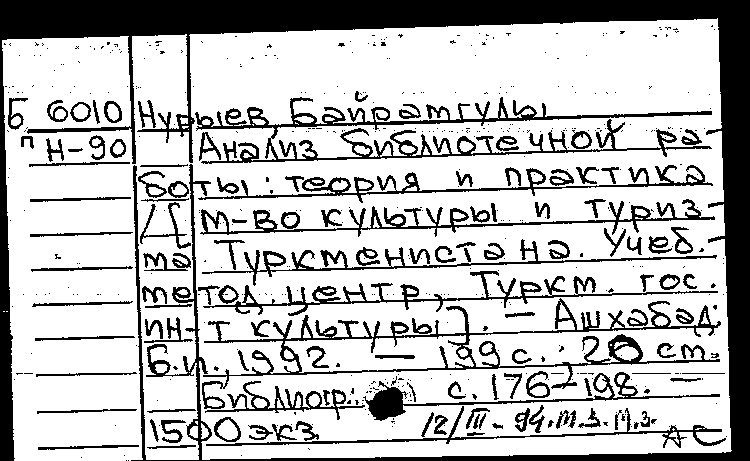 Б 6010 Нурыев, Байрамгулы
п Н-90 Анализ библиотечной ра-
боты: теория и практика
/[М-во культуры и туриз-
ма Туркменистана. Учеб.-
метод. центр, Туркм. гос.
ин-т культуры]. — Ашхабад:
Б.и., 1992. — 199 с.; 20 см.
Библиогр.: с. 176-198. —
1500 экз. 12/III-94.М.З.М.З.
АС